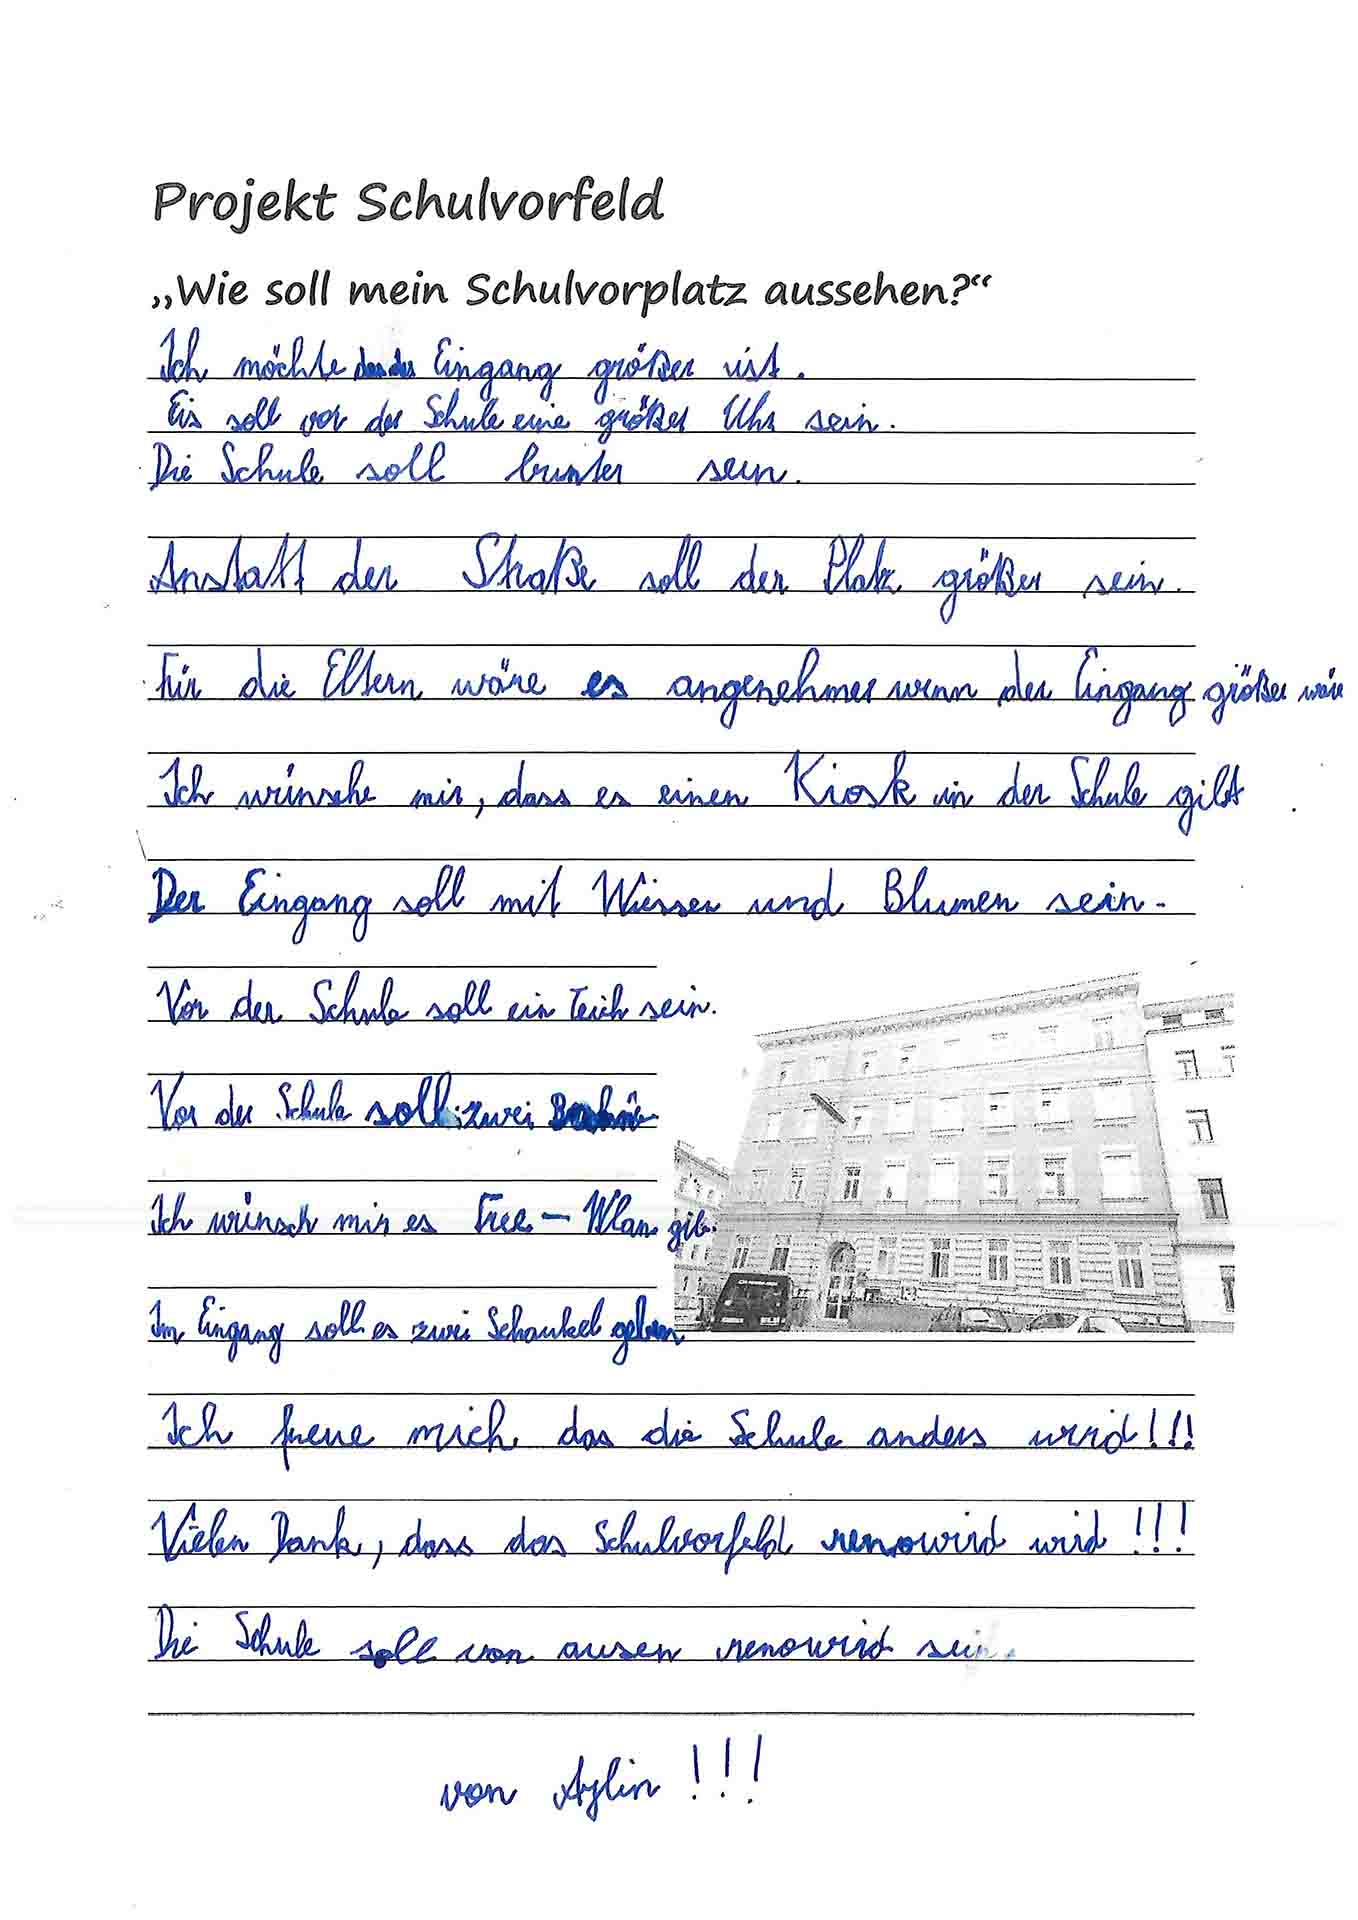 Projekt Schulvorfeld
„Wie soll mein Schulvorplatz aussehen?“
Ich möchte das der Eingang größer ist.
Eis soll vor der Schule eine größer Uhr sein.
Die Schule soll bunter sein.
Anstatt der Straße soll der Platz größer sein.
Für die Eltern wäre es angenehmer wenn der Eingang größer wäre
Ich wünsche mir, dass es einen Kiosk in der Schule gibt.
Der Eingang soll mit Wiesser und Blumen sein.
Vor der Schule soll ein Teich sein.
Vor der Schule soll zwei
Ich wünsch mir es Free-Wlan gib.
Im Eingang soll es zwei Schaukel geben
Ich freue mich das die Schule anders wird!!!
Vielen Dank, dass das Schulvorfeld renowird wird!!!
Die Schule soll von ausen renowird sein.
von Aylin!!!